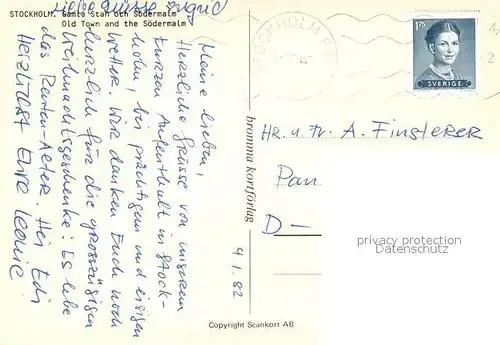 liebe Grüsse Ingrid
STOCKHOLM. Gamla Stan och Södermalm
Old Town and the Södermalm
Meine Lieben,
Herzliche Grüsse von unserem
kurzen Aufenthalt in Stock-
holm, bei prächtigem und eisigem
Wetter. Wir danken Euch noch
herzlich für die grosszügigen
Weihnachtsgeschenke: Es lebe
das Renten-Alter. Hei Edi
Herzlichst Eure Leonie
9/1. 82
bromma kortförlag
Copyright Scankort AB
STOCKHOLM
1.75
SVERIGE
Hr. u. Fr. A. Finsterer
Pan
D -
privacy protection
Datenschutz